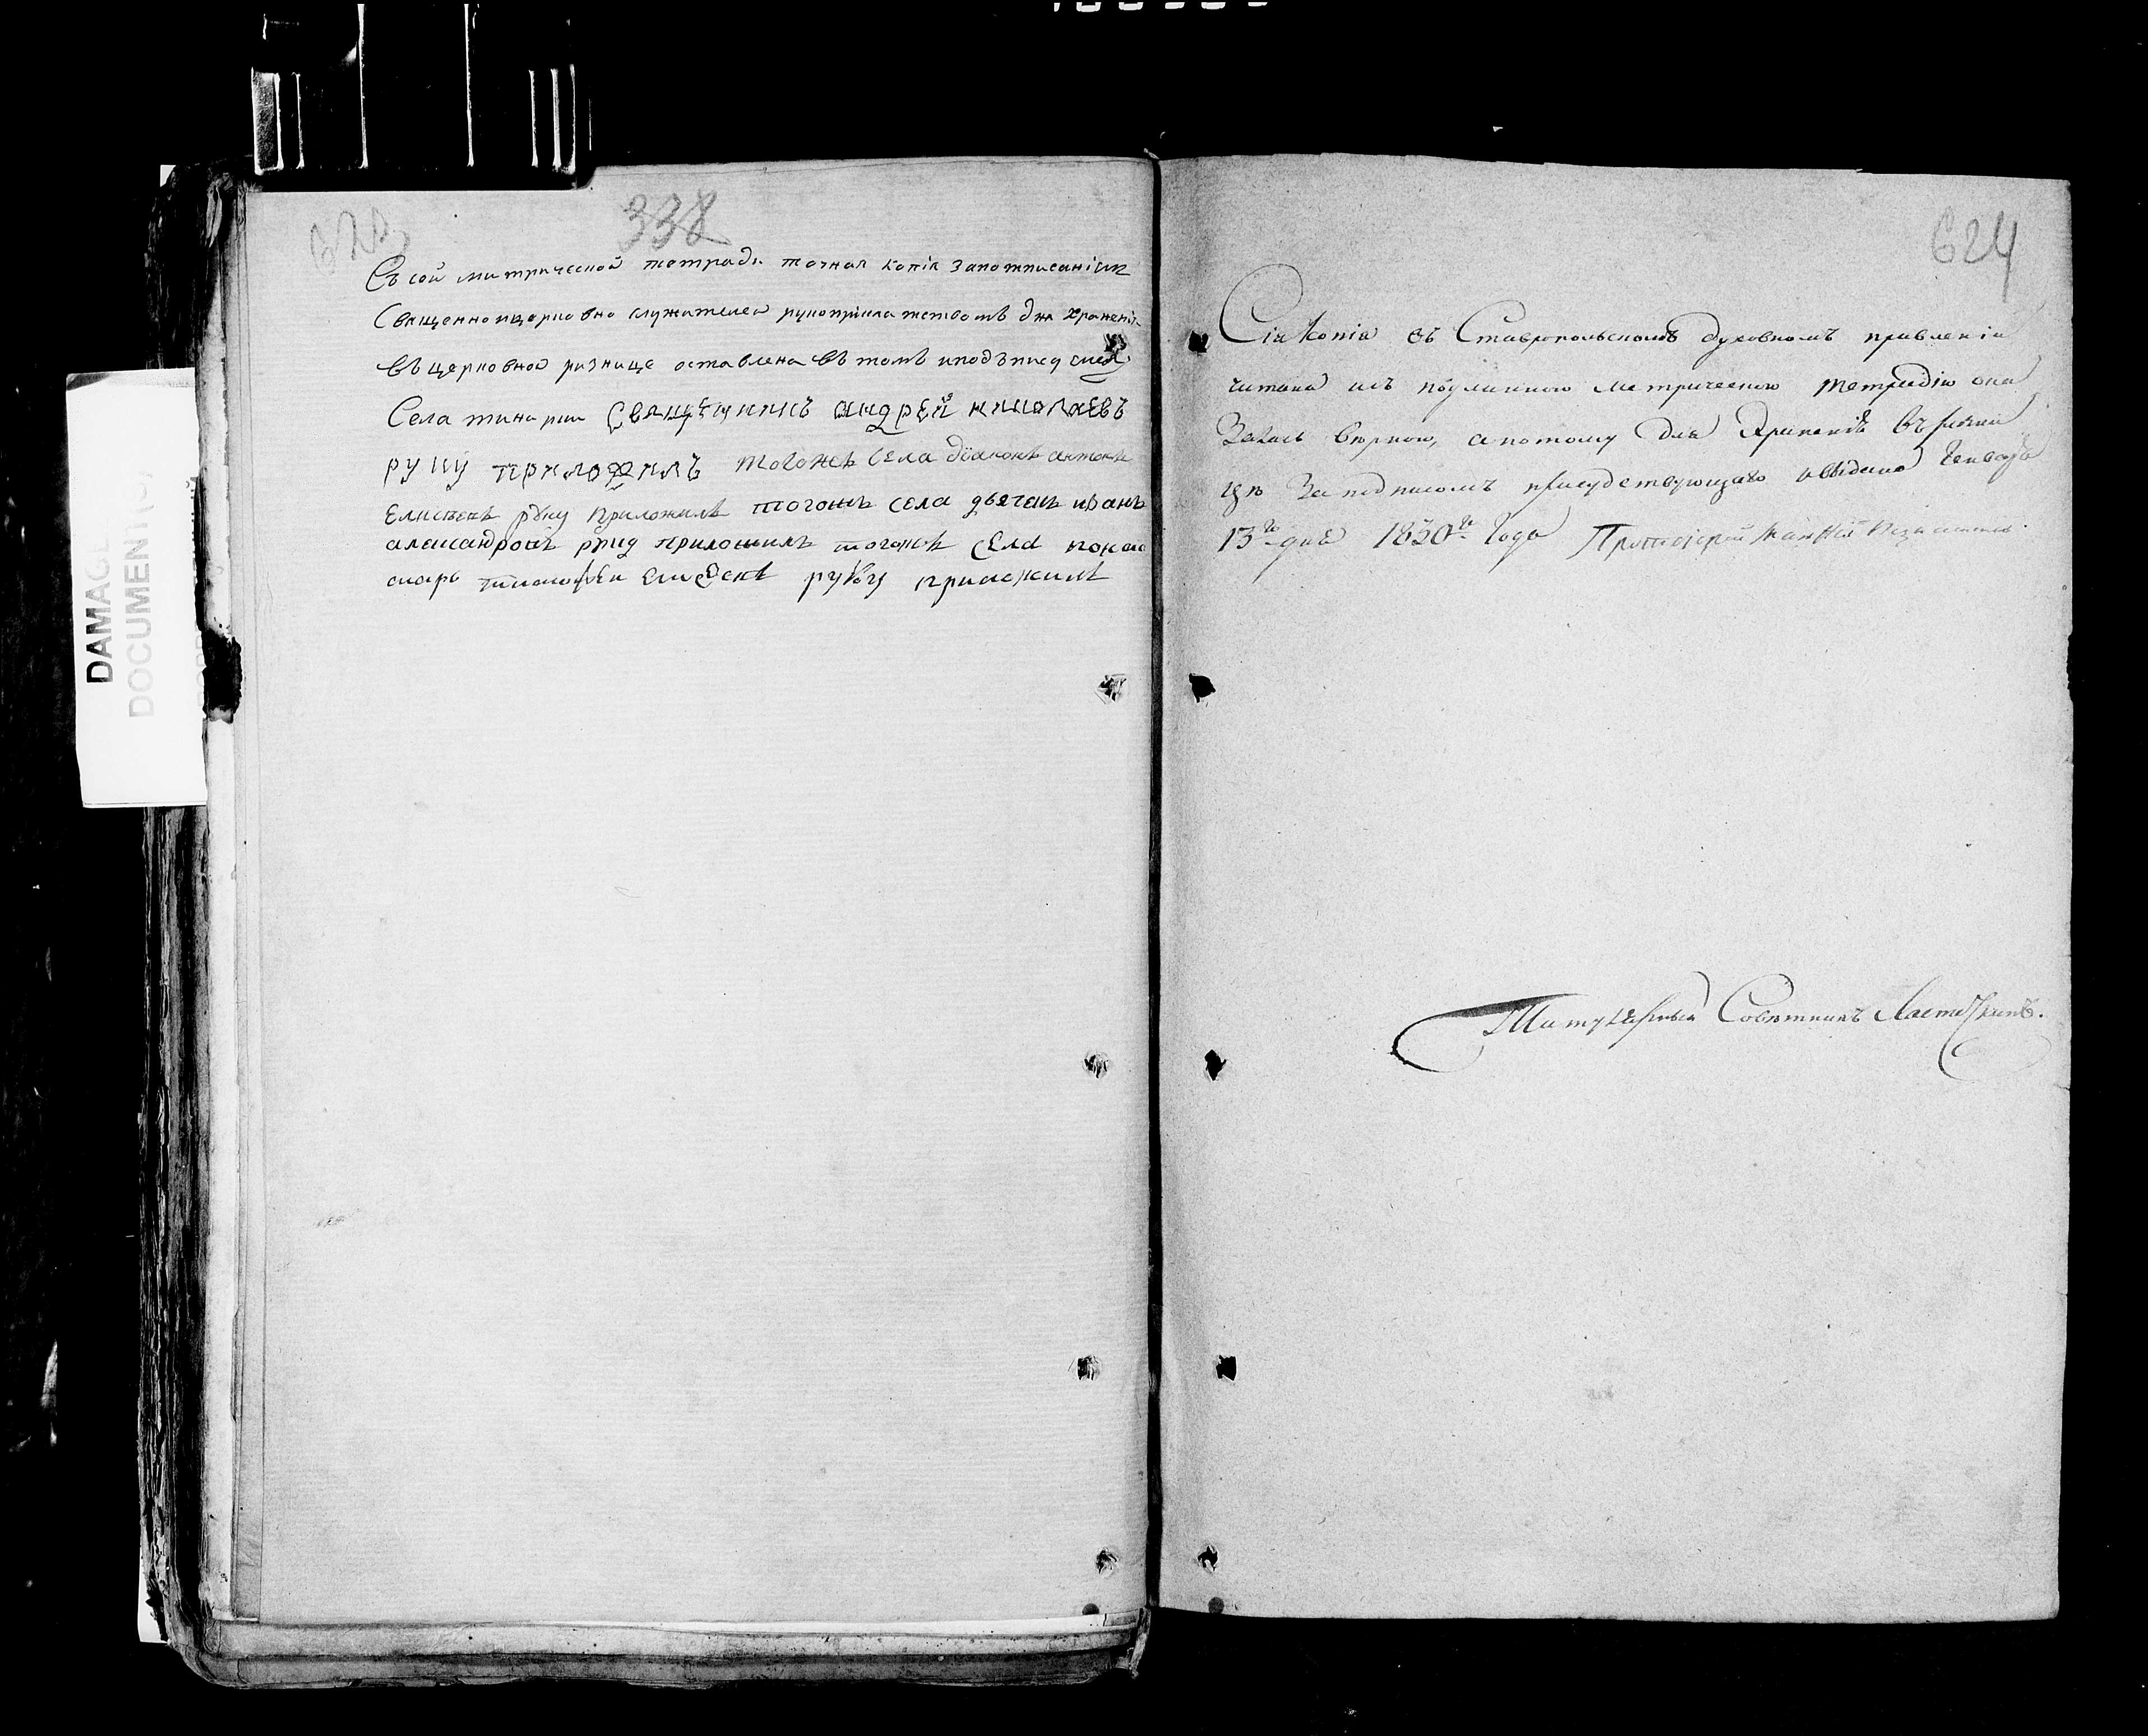 338
Съ сой митрической тетради точная копія запотписаніям
Священноицерковно служителей рукоприкладтствомъ для храненія
въ церковной ризнице оставлена въ томъ иподъписуемся.
Села священникъ андрей николаевъ
руку приложилъ тогожъ села діаконъ антонъ
руку приложилъ тогожъ села дьячекъ иванъ
александровъ руку приложилъ тогожъ села поно
марь тимофеи руку приложилъ
624
Сія Копія въ Ставропольскомъ духовномъ правленіи
читана исъ подлинною метрическою тетрадію она
вѣрною, апотому для храненія въ
за подписомъ присудствующаго Генваря
13го дня 1830го Года Протоіерей
Титулярный Совѣтникъ Ласточкинъ.
DAMAGE
DOCUMENT(S)